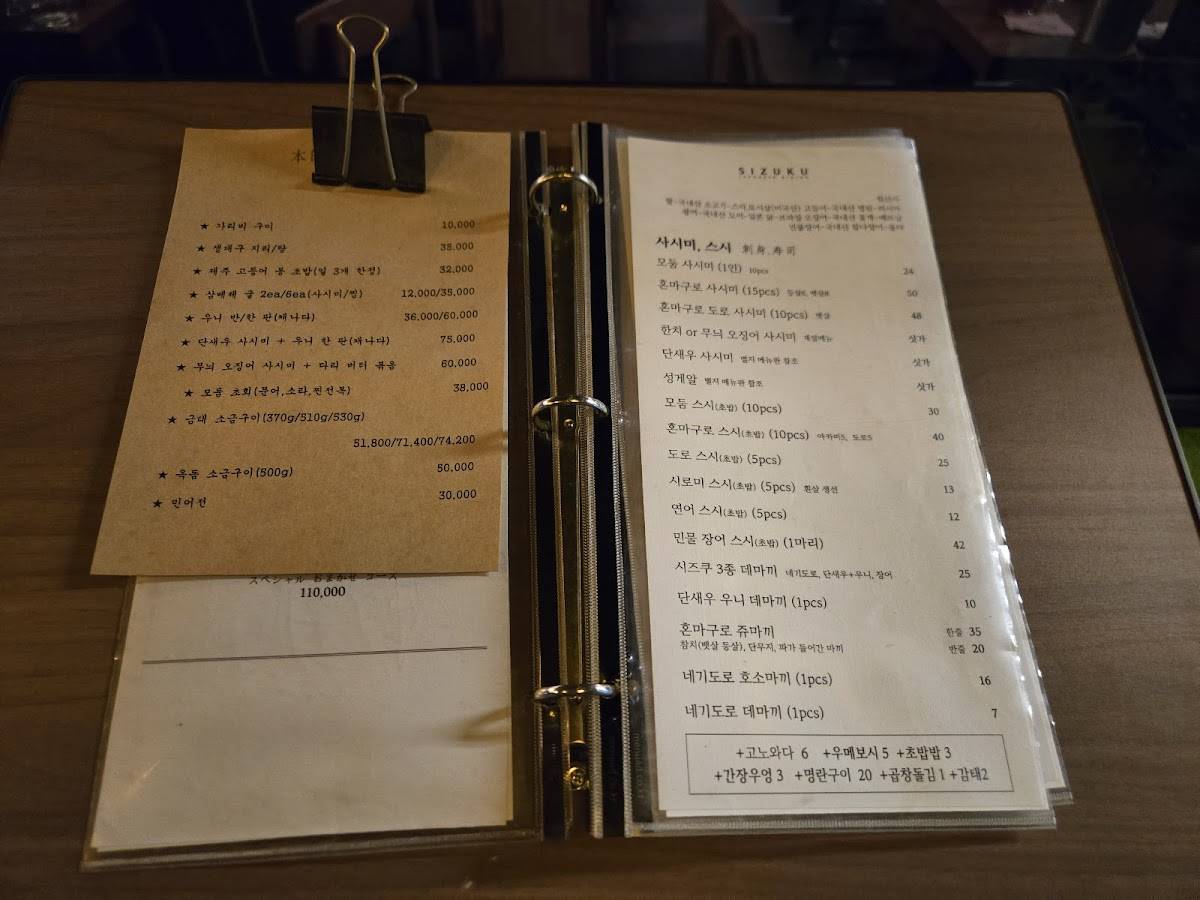 本
★ 가리비 구이 10,000
★ 생대구 지리/탕 38,000
★ 제주 고등어 봉 초밥(일 3개 한정) 32,000
★ 삼배체 굴 2ea/6ea(사시미/찜) 12,000/35,000
★ 우니 반/한 판(캐나다) 36,000/60,000
★ 단새우 사시미 + 우니 한 판(캐나다) 75,000
★ 무늬 오징어 사시미 + 다리 버터 볶음 60,000
★ 모둠 초회(문어,소라,찐전복) 38,000
★ 금태 소금구이(370g/510g/530g)
51,800/71,400/74,200
★ 옥돔 소금구이(500g) 50,000
★ 민어전 30,000
スペシャル おまかせ コース
110,000
SIZUKU
JAPANESE DINING
원산지
쌀-국내산 소고기-스키,토시살(미국산) 고등어-국내산 명란-러시아
광어-국내산 도미-일본 닭-브라질 오징어-국내산 꽃게-베트남
민물장어-국내산 참다랑어-몰타
사시미, 스시 刺身.寿司
모둠 사시미 (1인) 10pcs 24
혼마구로 사시미 (15pcs) 등살8, 뱃살8 50
혼마구로 도로 사시미 (10pcs) 뱃살 48
한치 or 무늬 오징어 사시미 계절메뉴 싯가
단새우 사시미 별지 메뉴판 참조 싯가
성게알 별지 메뉴판 참조 싯가
모둠 스시(초밥) (10pcs) 30
혼마구로 스시(초밥) (10pcs) 아카미5, 도로5 40
도로 스시(초밥) (5pcs) 25
시로미 스시(초밥) (5pcs) 흰살 생선 13
연어 스시(초밥) (5pcs) 12
민물 장어 스시(초밥) (1마리) 42
시즈쿠 3종 데마끼 네기도로, 단새우+우니, 장어 25
단새우 우니 데마끼 (1pcs) 10
혼마구로 쥬마끼 한줄 35
참치(뱃살 등살), 단무지, 파가 들어간 마끼 반줄 20
네기도로 호소마끼 (1pcs) 16
네기도로 데마끼 (1pcs) 7
+고노와다 6 +우메보시 5 +초밥밥 3
+간장우엉 3 +명란구이 20 +곱창돌김 1 +감태2